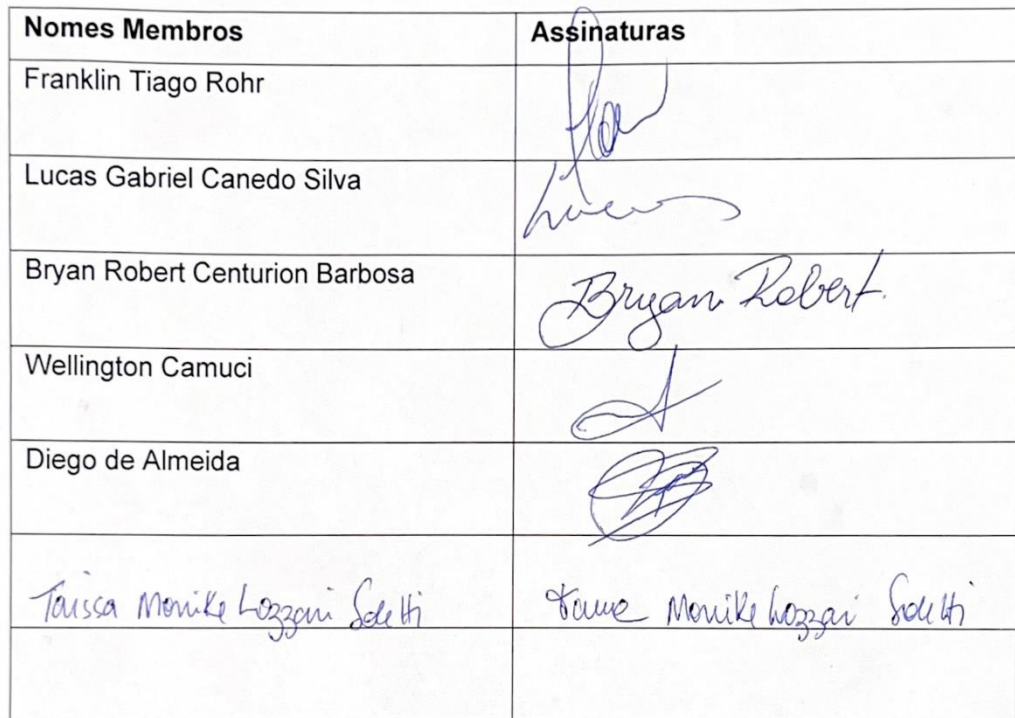 Nomes Membros Assinaturas
Franklin Tiago Rohr
Lucas Gabriel Canedo Silva Lucas
Bryan Robert Centurion Barbosa Bryan Robert.
Wellington Camuci
Diego de Almeida
Taissa Monike Lozzari Soletti Monike Lozzari Soletti